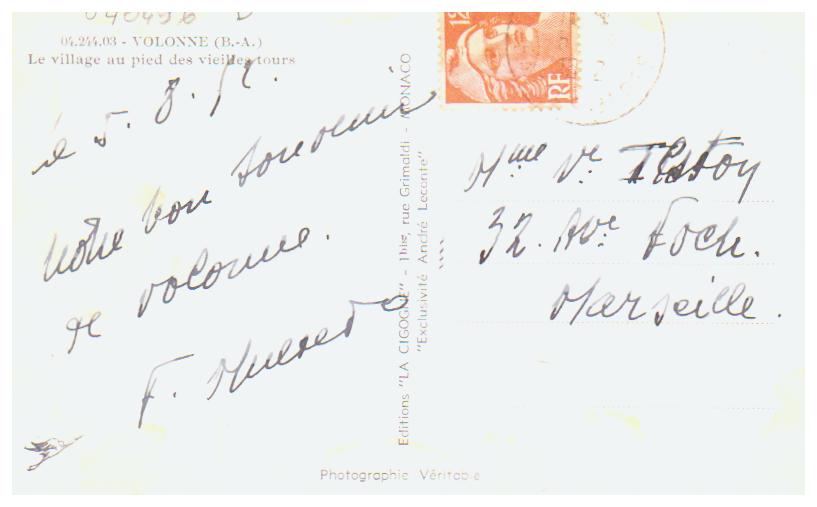 040496
04.244.03 - VOLONNE (B.-A.)
Le village au pied des vieilles tours
le 5. 8. 51.
Notre bon souvenir
de Volonne.
F.
Editions "LA CIGOGNE" - 1bis, rue Grimaldi - MONACO
"Exclusivité André Leconte"
12
RF
Mme Ve Testoy
32. Ave Foch.
Marseille.
Photographie Véritable